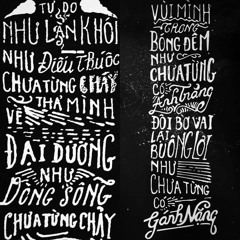 TỰ DO
NHƯ LÀN KHÓI
NHƯ ĐIẾU THUỐC
CHƯA TỪNG CHÁY
THẢ MÌNH
VỀ
ĐẠI DƯƠNG
NHƯ
DÒNG SÔNG
CHƯA TỪNG CHẢY
VÙI MÌNH
TRONG
BÓNG ĐÊM
NHƯ
CHƯA TỪNG
CÓ ÁNH TRĂNG
ĐÔI BỜ VAI
LẠI
BUÔNG LƠI
NHƯ
CHƯA TỪNG
CÓ
GÁNH NẶNG